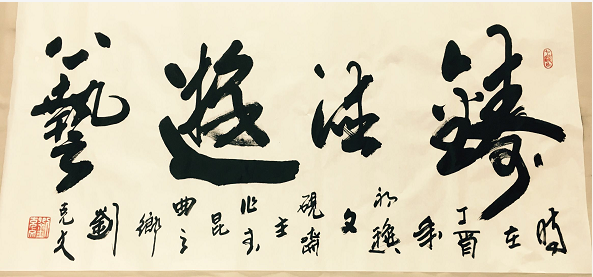 鑄遊藝
時在丁酉年初文硯齋主作於昆曲之鄉劉克文